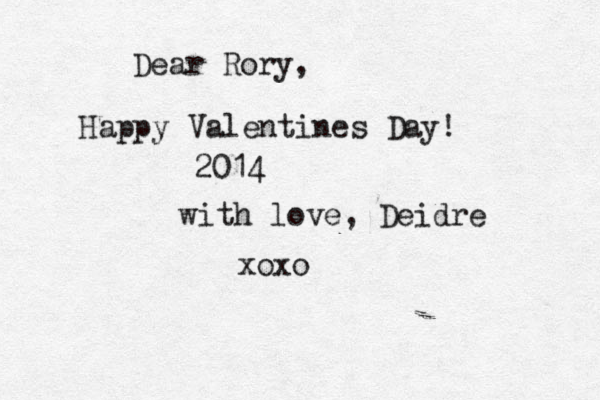 Dear Rory,
Happy Valentines Day!
2014
with love, Deidre
xoxo